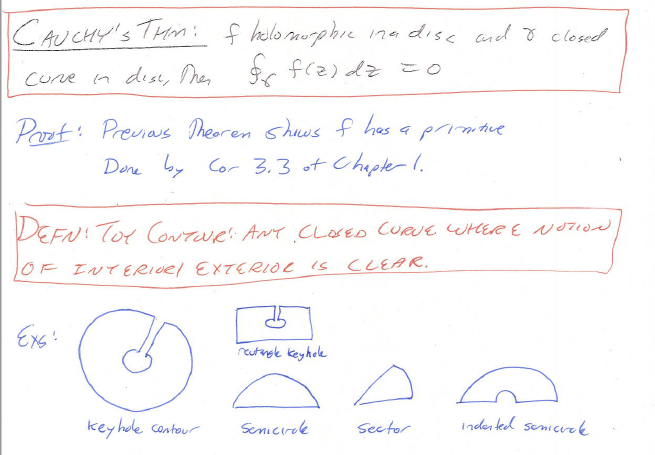 CAUCHY'S THM: f holomorphic in a disc and γ closed
curve in disc, Then ∮_γ f(z) dz = 0
Proof: Previous Theorem shows f has a primitive
Done by Cor 3.3 of Chapter 1.
DEFN: TOY CONTOUR: ANY CLOSED CURVE WHERE NOTION
OF INTERIOR/EXTERIOR IS CLEAR.
Exs:
rectangle keyhole
keyhole contour
semicircle
sector
indented semicircle